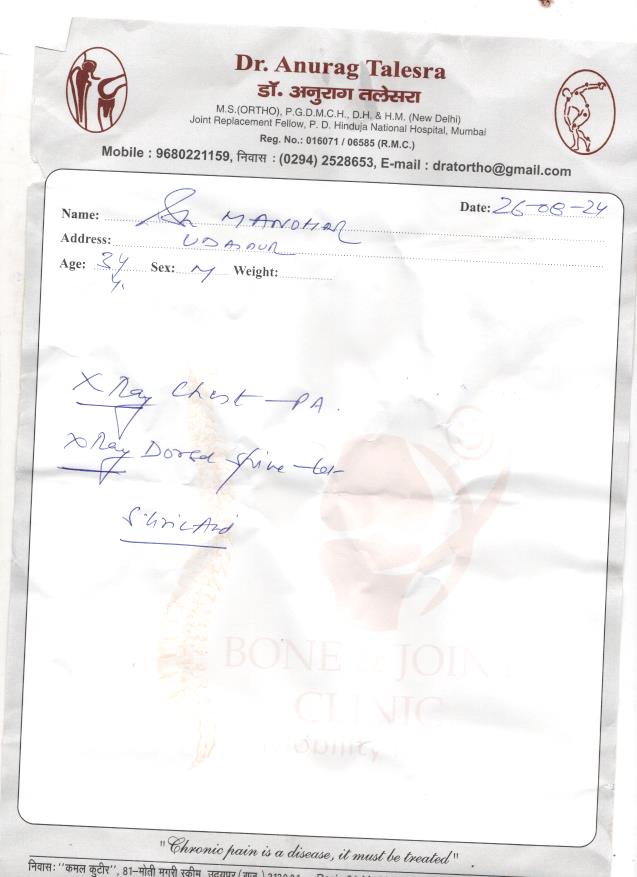 Dr. Anurag Talesra
डॉ. अनुराग तलेसरा
M.S.(ORTHO), P.G.D.M.C.H., D.H. & H.M. (New Delhi)
Joint Replacement Fellow, P. D. Hinduja National Hospital, Mumbai
Reg. No.: 016071 / 06585 (R.M.C.)
Mobile : 9680221159, निवास : (0294) 2528653, E-mail : dratortho@gmail.com
Date: 26-08-24
Name: MANOHAR
Address: UDAIPUR
Age: 34 y. Sex: M Weight:
X Ray Chest - PA
X Ray Dorsal Spine -
BONE & JOINT
CLINIC
"Chronic pain is a disease, it must be treated"
निवास: "कमल कुटीर", 81-मोती मगरी स्कीम, उदयपुर (राज.)